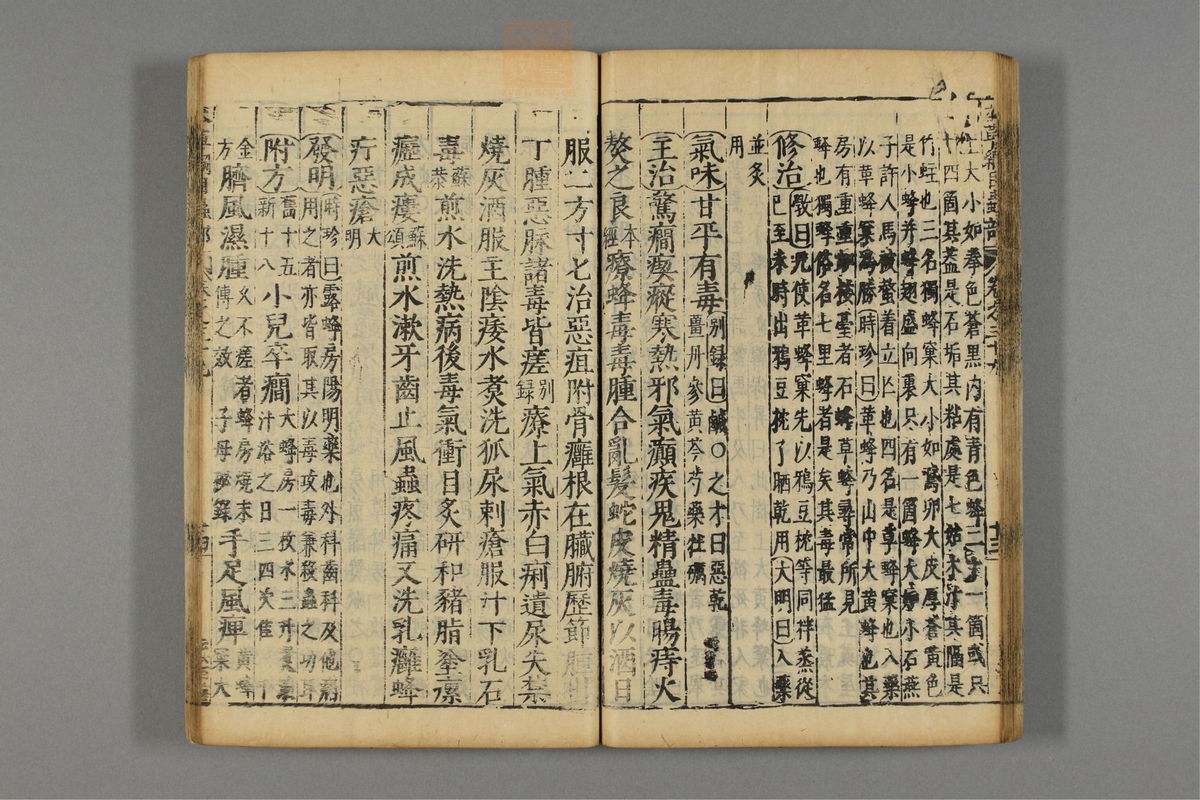 本草綱目蟲部 卷之三十九 十三
上大小如拳色蒼黑内有青色蜂二十一箇或只
十四箇其蓋是石垢其粘處是七姑木汁其隔是
竹蛀也三名獨蜂窠大小如鵞卵大皮厚蒼黄色
是小蜂并蜂翅盛向裏只有一箇蜂大如小石燕
子許人馬被螫着立亡也四名是草蜂窠也入藥
以革蜂窠爲勝時珍曰革蜂乃山中大黄蜂也其
房有重重如樓臺者石蜂草蜂尋常所見
蜂也獨蜂俗名七里蜂者是矣其毒最猛
修治斆曰凡使革蜂窠先以鴉豆枕等同拌蒸從
巳至未時出鴉豆枕了晒乾用大明曰入藥
並炙
用
氣味甘平有毒别録曰鹹○之才曰惡乾
薑丹參黄芩芍藥牡蠣
主治驚癎瘈瘲寒熱邪氣癲疾鬼精蠱毒腸痔火
熬之良本經療蜂毒毒腫合亂髮蛇皮燒灰以酒日
服二方寸匕治惡疽附骨癰根在臟腑歷節腫出
丁腫惡脉諸毒皆瘥别録療上氣赤白痢遺尿失禁
燒灰酒服主陰痿水煑洗狐尿刺瘡服汁下乳石
毒蘇恭煎水洗熱病後毒氣衝目炙研和豬脂塗瘰
癧成瘻蘇頌煎水漱牙齒止風蟲疼痛又洗乳癰蜂
疔惡瘡大明
發明時珍曰露蜂房陽明藥也外科齒科及他病
用之者亦皆取其以毒攻毒兼殺蟲之功耳
附方舊十五
新十八小兒卒癎大蜂房一枚水三升煑濃
汁浴之日三四次佳 千
金
方臍風濕腫久不瘥者蜂房燒末
傅之效 子母秘録手足風痺黄蜂
窠大